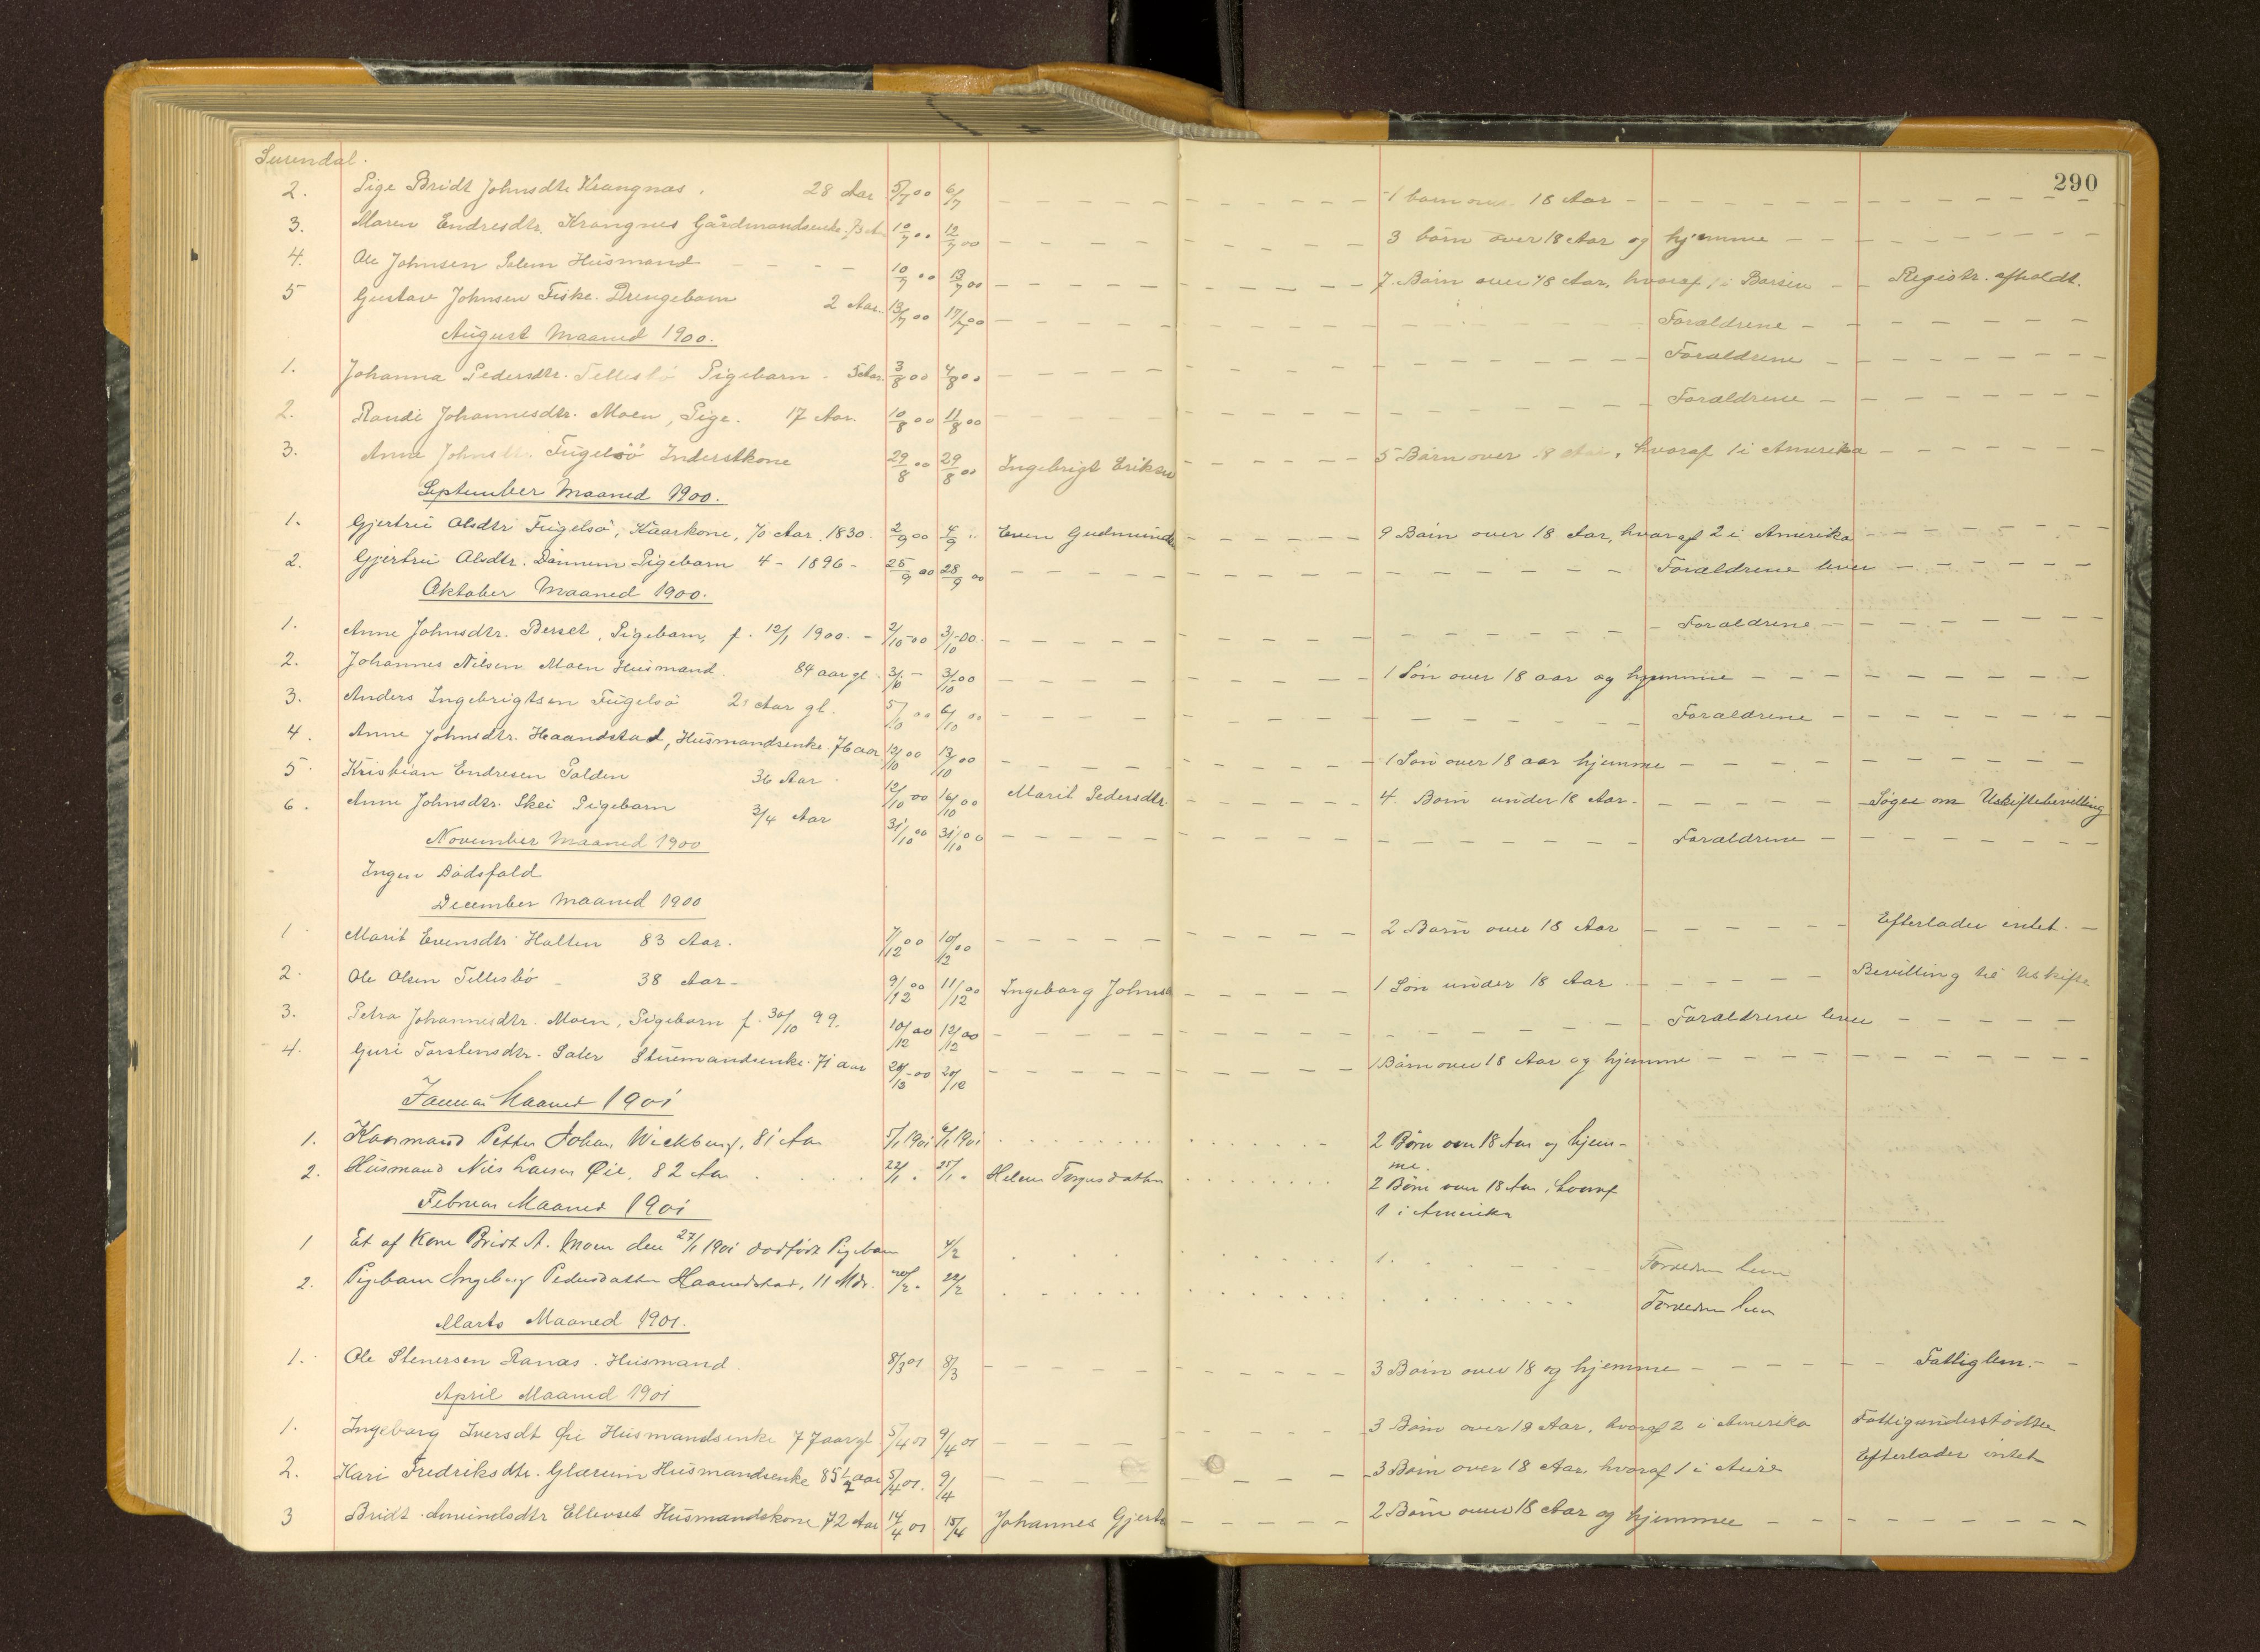 290
Surendal.
2. Pige Bridt Johnsdtr Krangnæs. 28 Aar 5/7 00 6/7 1 barn over 18 Aar
3. Maren Endresdtr. Krangnes Gårdmandsenke 10/7 00 12/7 00 3 børn over 18 Aar og hjemme
4. Ole Johnsen Solem Husmand 10/7 00 13/7 00 7 Børn over 18 Aar, hvoraf 1 i Registr. afholdt.
5 Gustav Johnsen Fiske. Drengebarn 2 Aar. 13/7 00 17/7 00 Forældrene
August Maaned 1900.
1. Johanna Pedersdtr. Tellesbø Pigebarn 3/8 00 4/8 00 Forældrene
2. Randi Johannesdtr. Moen, Pige. 17 Aar. 10/8 00 11/8 00 Forældrene
3. Anne Johnsdtr. Fugelsö Inderstkone 29/8 00 29/8 00 Ingebrigt Eriksen 5 Børn over 18 Aar, hvoraf 1 i Amerika
September Maaned 1900.
1. Gjertru Olsdtr Fugelsö, Kaarkone, 70 Aar 1830. 2/9 00 4/9 " Even Gudmunds 9 Børn over 18 Aar, hvoraf 2 i Amerika
2. Gjertru Olsdtr. Dønnem Pigebarn 4 - 1896 - 25/9 00 28/9 00 Forældrene lever
Oktober Maaned 1900.
1. Anne Johnsdtr. Berset, Pigebarn, f. 12/1 1900. - 2/10-00 3/10-00. Forældrene
2. Johannes Nilsen Moen Husmand. 84 aar gl. 3/10 - 3/10 00 1 Søn over 18 aar og hjemme
3. Anders Ingebrigtsen Fugelsö Aar gl. 5/10 00 6/10 00 Forældrene
4. Anne Johnsdtr. Haandstad, Husmandsenke. 76 aar 12/10 00 13/10 00 1 Søn over 18 aar hjemme
5. Kristian Endresen Polden 36 Aar 12/10 00 16/10 00 Marit Pedersdtr. 4 Børn under 18 Aar. Søges om Uskiftebevilling
6. Anne Johnsdtr. Skei Pigebarn 3/4 Aar 31/10 00 31/10 00 Forældrene
November Maaned 1900
Ingen Dødsfald
December Maaned 1900
1 Marit Evensdtr Halten 83 Aar. 7/12 00 10/12 00 2 Børn over 18 Aar Efterlader intet.
2. Ole Olsen Tellesbö - 38 Aar - 9/12 00 11/12 00 Ingeborg Johnsd 1 Søn under 18 Aar. Bevilling til Uskifte
3. Petra Johannesdtr. Moen, Pigebarn f. 30/10 99. 10/12 00 12/12 00 Forældrene lever
4. Guri Torstensdtr. Sæter 71 aar 20/12 1 Børn over 18 Aar og hjemme
Januar Maaned 1901
1. Kaarmand Petter Johan Wickberg, 81 Aar 5/1 1901 6/1 1901 2 Børn over 18 Aar og hjem-
me.
2. Husmand Nils Larsen Øie, 82 Aar 22/1 " 25/1 " Helene Torgersdatter 2 Børn over 18 Aar, hvoraf
1 i Amerika
Februar Maaned 1901
1 Et af Kone Bridt A. Moen den 27/1 1901 dødfødt Pigebarn 4/2 1. Forældrene lever
2. Pigebarn Ingeborg Pedersdatter Haandstad, 11 Mdr. 20/2 " 22/2 Forældrene lever
Marts Maaned 1901.
1. Ole Stenersen Ranæs. Husmand 8/3 01 8/3 3 Børn over 18 og hjemme Fattiglem.
April Maaned 1901
1. Ingeborg Iversdt Øie Husmandsenke 77 aar gl 5/4 01 9/4 01 3 Børn over 18 Aar, hvoraf 2 i Amerika Fattigunderstødtee
2. Kari Fredriksdtr. Glærum Husmandsenke 85 1/2 aar 5/4 01. 9/4 3 Børn over 18 Aar, hvoraf 1 i Aure Efterlader intet
3 Bridt Amundsdtr Ellevset Husmandskone 72 Aar 14/4 01 15/4 Johannes Gjerts 2 Børn over 18 Aar og hjemmee